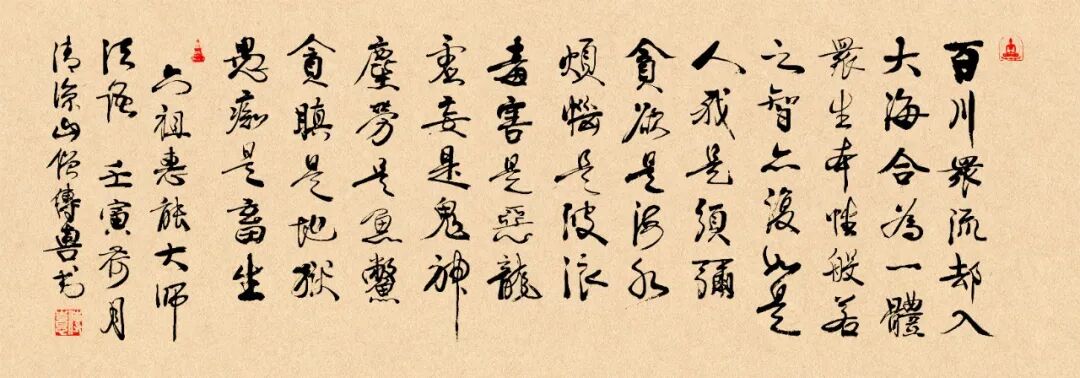 百川眾流却入
大海合為一體
眾生本性般若
之智亦復如是
人我是須彌
貪欲是海水
煩惱是波浪
毒害是惡龍
虛妄是鬼神
塵勞是魚鱉
貪瞋是地獄
愚痴是畜生
六祖惠能大師
法語 壬寅荷月
清涼山僧傳喜书